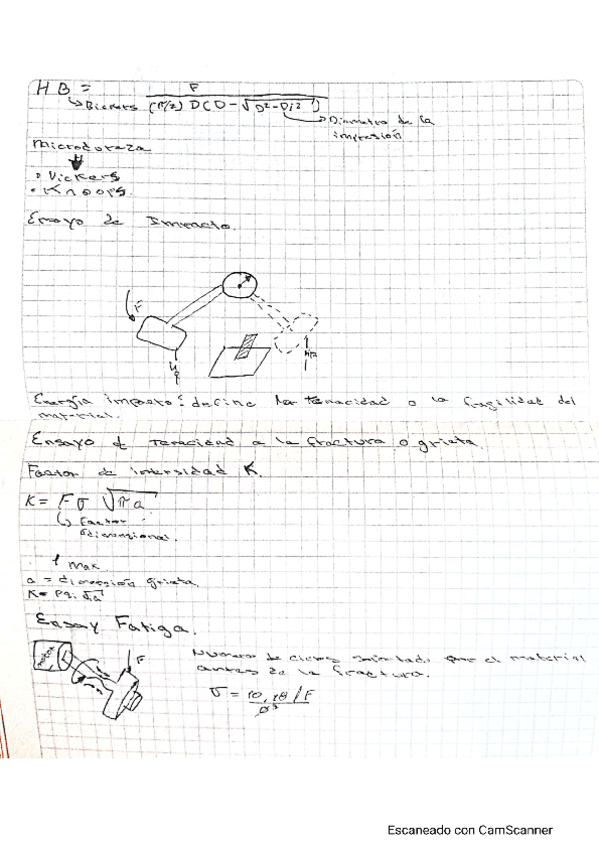 HB = F
(π/2) D(D-√D²-Di²)
Diametro de la
impresión
Microdureza
• Vickers
• Knoops.
Ensayo de Impacto.
F
Energía impacto: define la tenacidad o la fragilidad del
material.
Ensayo de tenacidad a la fractura o grieta.
Factor de intensidad K.
K = Fσ √πa
Factor
adimensional.
max
a = dimensión grieta
K = Psi √in
Ensay Fatiga.
motor
F
Numero de ciclos por el material
antes de la fractura.
σ = 10,18 l F